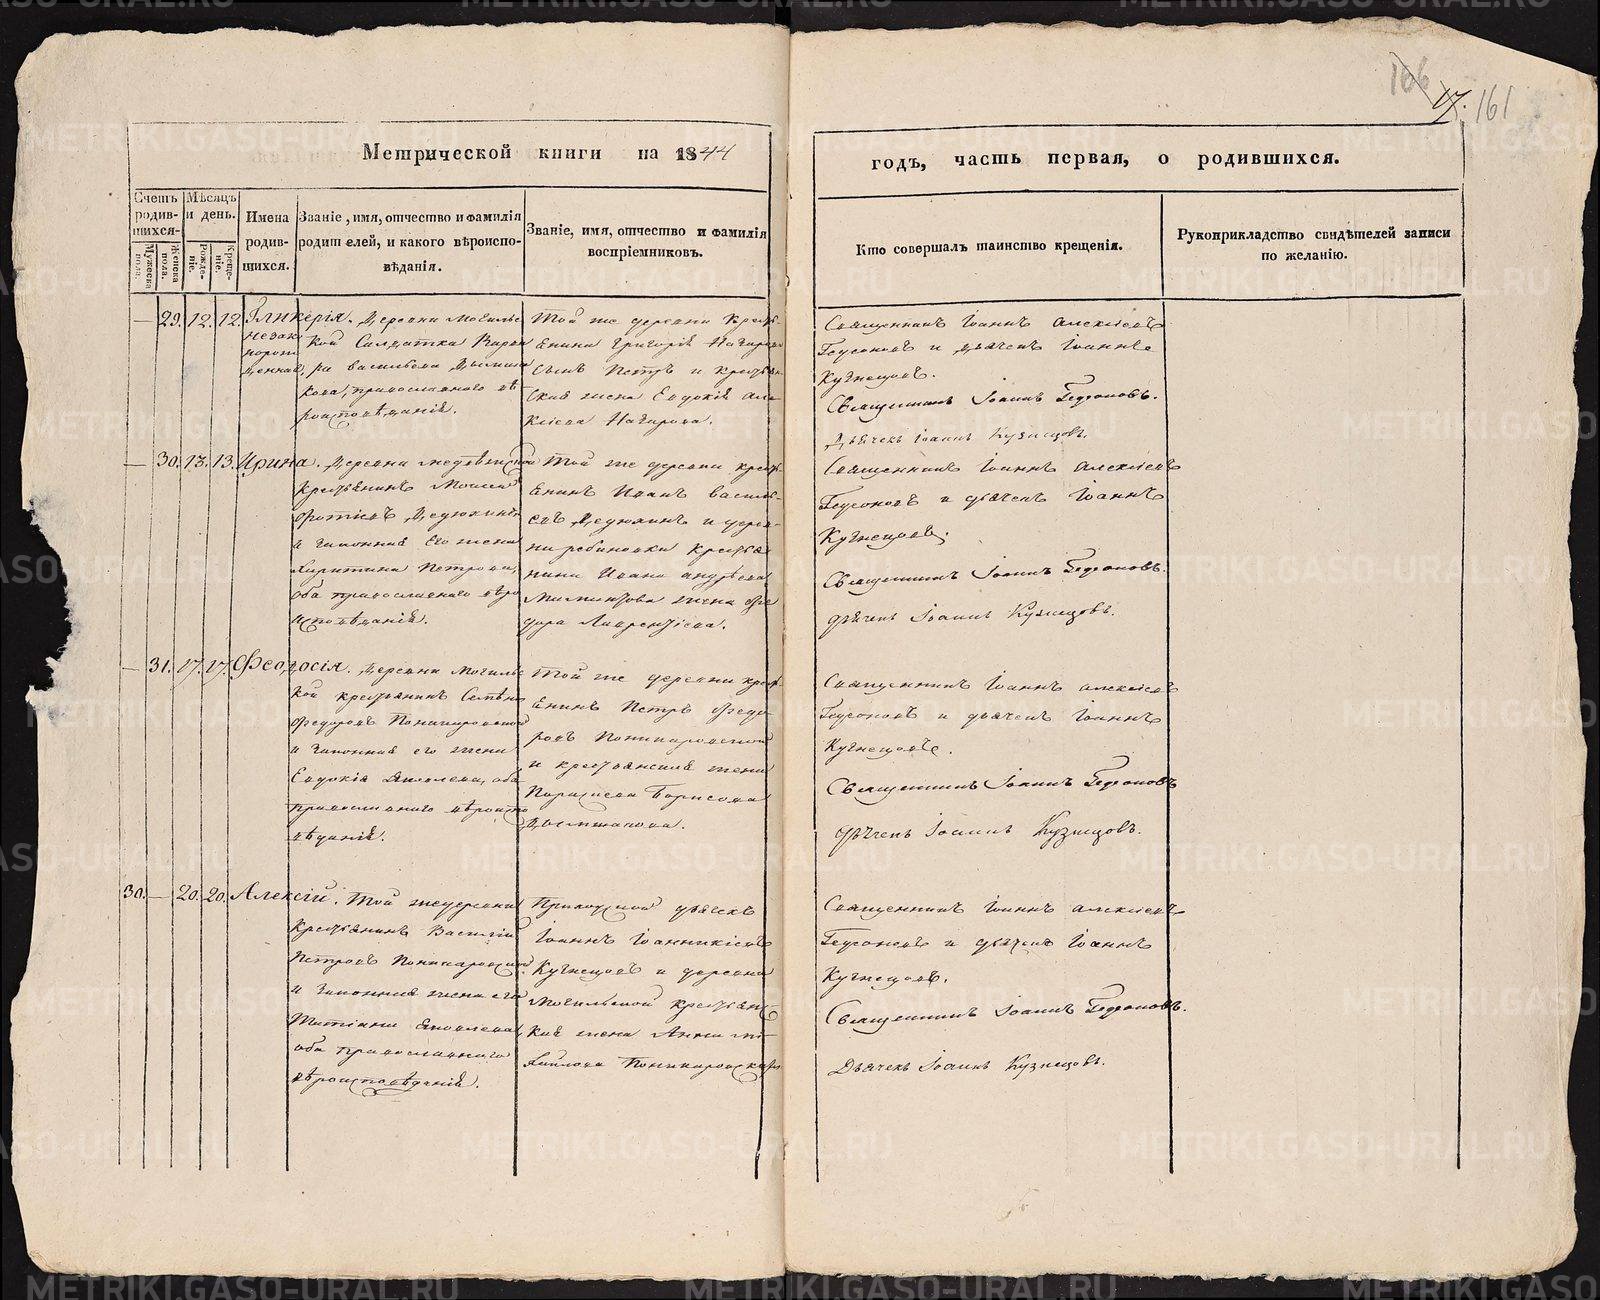 166
17. 161
Метрической книги на 1844
годъ, часть первая, о родившихся.
Счетъ родив- шихся.
Мужеска пола.
Женска пола.
Мѣсяцъ и день.
Рожде- ніе.
Креще- ніе.
Имена родив- шихся.
Званіе, имя, отчество и фамилія родителей, и какого вѣроиспо- вѣданія.
Званіе, имя, отчество и фамилія воспріемниковъ.
Кто совершалъ таинство крещенія.
Рукоприкладство свидѣтелей записи по желанію.
— 29. 12. 12. Гликерія.
незако
норож
денная,
Деревни Могильс
кой Солдатка Варва
ра Васильева
кова, православнаго вѣ
роисповѣданія.
Той же деревни Кресть-
янина Григорія
сынъ Петръ и крестьян
ская жена Евдокія Але
ксіева
Священникъ Іоаннъ Алексіевъ
Гедеоновъ и дьячекъ Іоаннъ
Кузнецовъ.
Священникъ Іоаннъ Гедеоновъ.
Дьячекъ Іоаннъ Кузнецовъ.
— 30. 13. 13. Ирина.
Деревни
Крестьянинъ Моисей
Фотіевъ Дедюхинъ
и законная его жена
Харитина Петрова,
оба православнаго вѣро
исповѣданія.
Той же деревни кресть-
янинъ Иванъ Василь-
евъ Дедюхинъ и дерев-
ни рябиновки крестья
нина Ивана Андреева
жена Ѳе
дора Лаврентіева.
Священникъ Іоаннъ Алексіевъ
Гедеоновъ и дьячекъ Іоаннъ
Кузнецовъ.
Священникъ Іоаннъ Гедеоновъ.
дьячекъ Іоаннъ Кузнецовъ.
— 31. 17. 17. Феодосія.
Деревни Могильс
кой крестьянинъ Семенъ
Федоровъ Пономаровской
и законная его жена
Евдокія Яковлева, оба
православнаго вѣроиспо
вѣданія.
Той же деревни крест-
янинъ Петръ Федо-
ровъ Пономаровской
и крестьянская жена
Параскева Борисова
Священникъ Іоаннъ Алексіевъ
Гедеоновъ и дьячекъ Іоаннъ
Кузнецовъ.
Священникъ Іоаннъ Гедеоновъ
дьячекъ Іоаннъ Кузнецовъ.
30. — 20. 20. Алексій.
Той же деревни
Крестьянинъ Василій
Петровъ Пономаровской
и законная жена его
Татіана Яковлева,
оба православнаго
вѣроисповѣданія.
Приходской дьячекъ
Іоаннъ Іоанникіевъ
Кузнецовъ и деревни
Могильской крестьянс
кая жена Анна Ми
хайлова Пономаровская
Священникъ Іоаннъ Алексіевъ
Гедеоновъ и дьячекъ Іоаннъ
Кузнецовъ.
Священникъ Іоаннъ Гедеоновъ.
Дьячекъ Іоаннъ Кузнецовъ.
METRIKI.GASO-URAL.RU